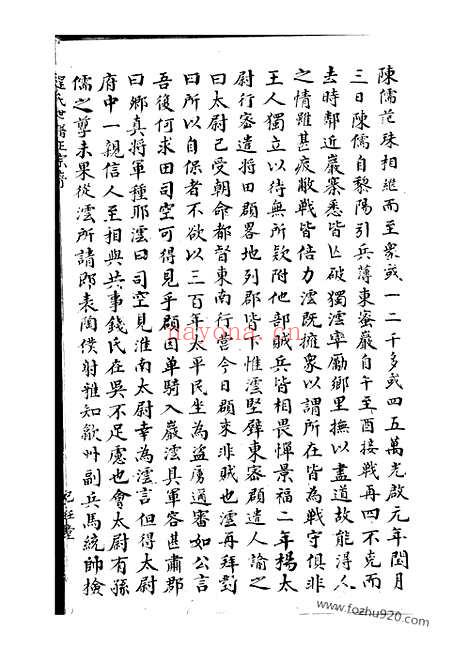 陳儒范珠相繼而至衆或一二千多或四五萬光啟元年閏月
三日陳儒自黎陽引兵薄東密巖自午至酉接戰再四不克而
去時鄰近巖寨悉皆亡破獨澐率勵鄉里撫以盡道故能得人
之情雖甚疲敝戰皆倍力澐既擁衆以謂所在皆為戰守俱非
王人獨立以待無所欵附他部賊兵皆相畏憚景福二年楊太
尉行密遣將田頵畧地列郡皆下惟澐堅壁東密頵遣人諭之
曰太尉已受朝命都督東南行營今日頵來非賊也澐再拜對
曰所以自保者不欲以三百年太平民坐為盜虜通審如公言
吾復何求田司空可得見乎頵因單騎入巖澐具軍容甚肅郡
曰鄉真將軍種耶澐曰司空見淮南太尉幸為澐言但得太尉
府中一親信人至相與共事錢氏在吳不足慮也會太尉有孫
儒之孽未果從澐所請郎表陶僕射雅知歙州副兵馬統帥撿
程氏世譜正宗